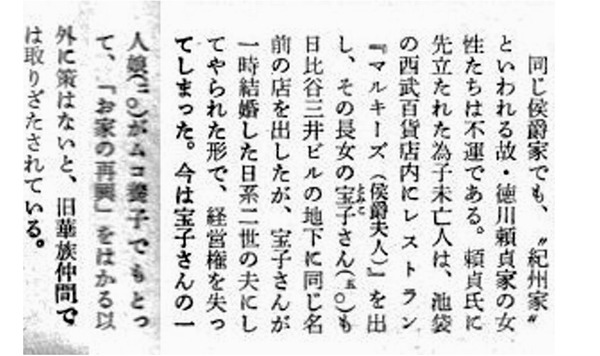 同じ侯爵家でも、〝紀州家〟
といわれる故・徳川頼貞家の女
性たちは不運である。頼貞氏に
先立たれた為子未亡人は、池袋
の西武百貨店内にレストラン
『マルキーズ（侯爵夫人）』を出
し、その長女の宝子さん（五〇）も
日比谷三井ビルの地下に同じ名
前の店を出したが、宝子さんが
一時結婚した日系二世の夫にし
てやられた形で、経営権を失っ
てしまった。今は宝子さんの一
人娘（二〇）がムコ養子でもとっ
て、「お家の再興」をはかる以
外に策はないと、旧華族仲間で
は取りざたされている。